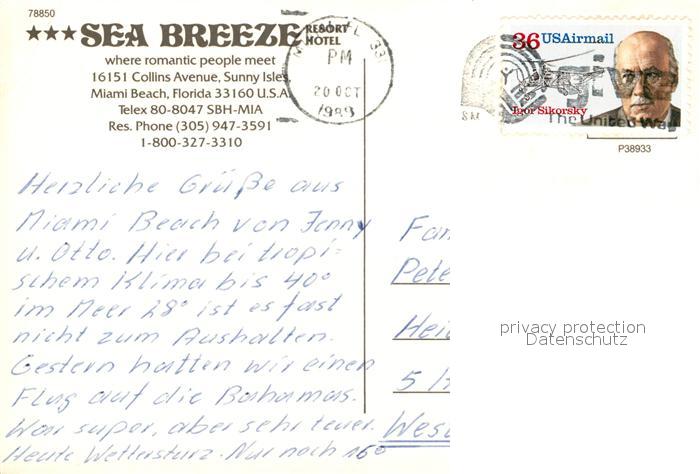 78850
★★★SEA BREEZE RESORT HOTEL
where romantic people meet
16151 Collins Avenue, Sunny Isles,
Miami Beach, Florida 33160 U.S.A.
Telex 80-8047 SBH-MIA
Res. Phone (305) 947-3591
1-800-327-3310
PM
20 OCT
1989
36 USAirmail
Igor Sikorsky
The United Way
P38933
Herzliche Grüße aus
Miami Beach von Jenny
u. Otto. Hier bei tropi-
schem Klima bis 40°
im Meer 28° ist es fast
nicht zum Aushalten.
Gestern hatten wir einen
Flug auf die Bahamas.
War super, aber sehr teuer.
Heute Wettersturz. Nur noch 16°
Fam
Pete
Hei
5
West
privacy protection
Datenschutz